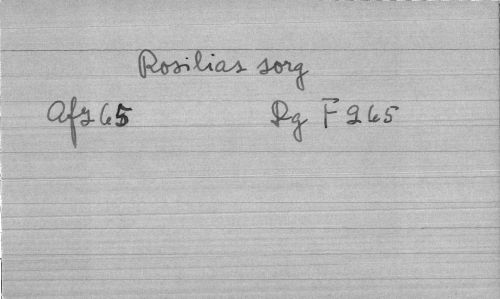 Rosilias sorg
Afz 65
Rg F 265